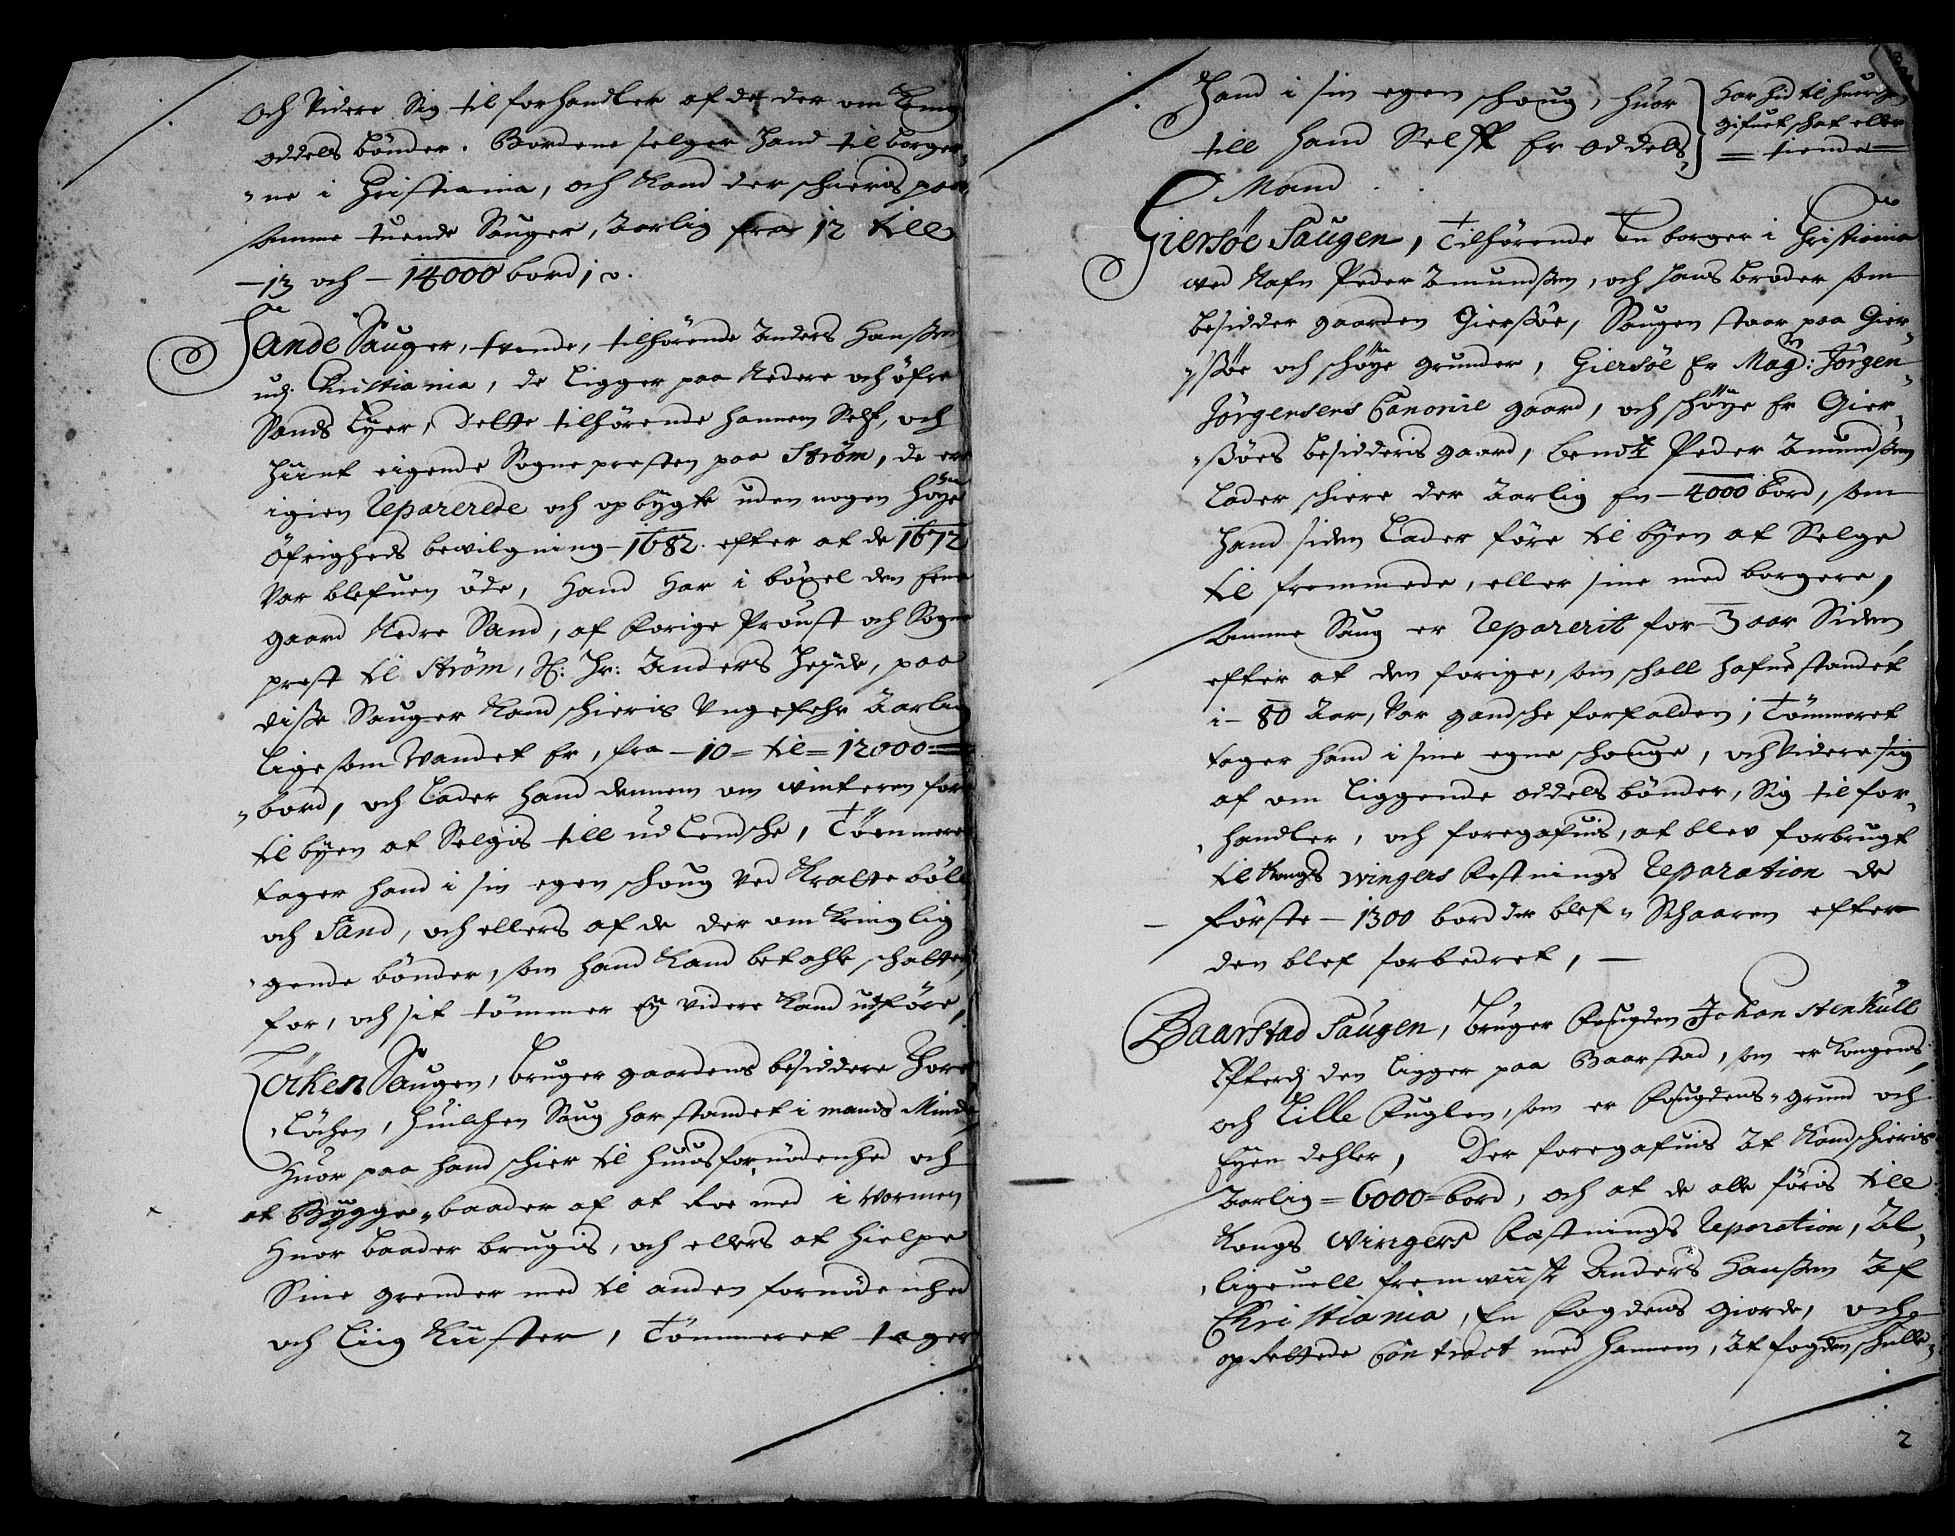 och Videre Sig til forhandler af de der om Kring
oddels bönder. Bordene selger hand til borger„
„ne i Christiania, och Kand der schieris paa
samme tuende Sauger, Aarlig fra 12 till
-13 och - 14000 bord,
Sande Sauger, tvende, tilhörende Anders Hanßen
udj Christiania, de ligger paa Nedere och öfre
Sands Eyer, dette tilhörende hannem Self, och
hiint eigende Sogne presten paa Ström, de ere
igien Reparerede och opbygte uden nogen høye
Öfrigheds bewilgning - 1682. efter at de 1672
Var blefuen öde, Hand Har i böxel den hene
gaard Nedre Sand, af forige Proust och Sogne
prest til Ström, H: Anders Heyde, paa
diße Sauger Kand schieris Ungefehr Aarlig
ligesom Wandet Er, fra - 10 = til = 12000 =
„bord, och lader hand dennem om winteren före
til byen at Selgis till udlendsche, Tömmeret
tager hand i sin egen schoug ved Kraltebøll
och Sand, och ellers af de der om Kring lig
„gende bönder, som hand Kand betahle schatten
for, och sit tömmer Ey videre Kand udföre,
Löken Saugen, bruger gaardens besiddere Thore
Löchen, Huilchen Saug har standet i mands Minde
Huor paa hand schier til huus fornödenhed och
at Bygge „baader af at Roe med i Wormen
Huor baader brugis, och ellers at hielpe
Sine grender med til anden fornödenhed
och liig Kiister, Tömmeret tager
Hand i sin egen schoug, huor
till hand Selff Er oddels„
Mand
Har hid til huerchen
gifuet schat eller
= tiende =
Giersöe Saugen, Tilhörende En borger i Christiania
wed Nafn Peder Amundßen, och hans broder som
besidder gaarden Gierßöe, Saugen staar paa Gier„
„ßöe och schöye grunder, Giersöe Er Mag: Jörgen
Jörgensens Canonie gaard, och schöye Er Gier„
„ßöes besidderis gaard, bendte Peder Amundßen
lader schiere der Aarlig En - 4000 bord, som
hand siden lader före til byen at Selge
til fremmede, eller sine med borgere,
samme Saug er Reparerit for 3 aar Siden,
efter at den forige, som schall hafue standet
i - 80 Aar, Var gandsche forfalden, Tömmeret
tager hand i sine egne schouge, och Videre sig
af om liggende oddels bönder, Sig til for„
„handler, och foregafuis, at blev forbrugt
til Kongs wingers Festnings Reparation de
förste - 1300 bord der blef Schaaren efter
den blef forbedret, -
Baarstad Saugen, bruger Fougden Johan Stenkull
Efterdj den ligger paa Baarstad, som er Kongens,
och Lille Fuglen, som er Fougdens „grund och
Eyen dehler, Der foregafuis At Kand schieris
Aarlig = 6000 = bord, och at de alle föris till
Kongs wingers Fæstnings Reparation, Al„
„ligeuell fremwiiste Anders Hanßen Af
Christiania, En Fogdens giorde, och
oprettede Contract med hannem, At fogden schulle„
2